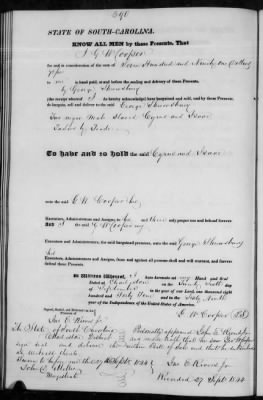 590
STATE OF SOUTH-CAROLINA.
KNOW ALL MEN by these Presents, That
I G W Cooper
for and in consideration of the sum of Seven Hundred and Ninety one Dollars
to me in hand paid, at and before the sealing and delivery of these Presents,
by George Shrewsbury
(the receipt whereof I do hereby acknowledge) have bargained and sold, and by these Presents, do bargain, sell and deliver to the said George Shrewsbury
Two negro Male Slaves Cyrus and Isaac
Tailors by Trade
To have and to hold the said Cyrus and Isaac
unto the said G W Cooper his
Executors, Administrators and Assigns, to his and their only proper use and behoof forever.
AND I the said G W Cooper my
Executors and Administrators, the said bargained premises, unto the said George Shrewsbury
his
Executors, Administrators and Assigns, from and against all persons shall and will warrant, and forever defend these Presents.
In Witness Whereof, I have hereunto set my Hand and Seal
Dated at Charleston on the Twenty Sixth day
of September in the year of our Lord, one thousand eight
hundred and forty four and in the Sixty Ninth
year of the Independence of the United States of America.
G W Cooper
Signed, Sealed and Delivered
The State of South Carolina
Charleston District
Personally appeared
and made oath that he saw
sign seal and deliver the within
Sept 1844
Magistrate
Recorded 27 Sept 1844